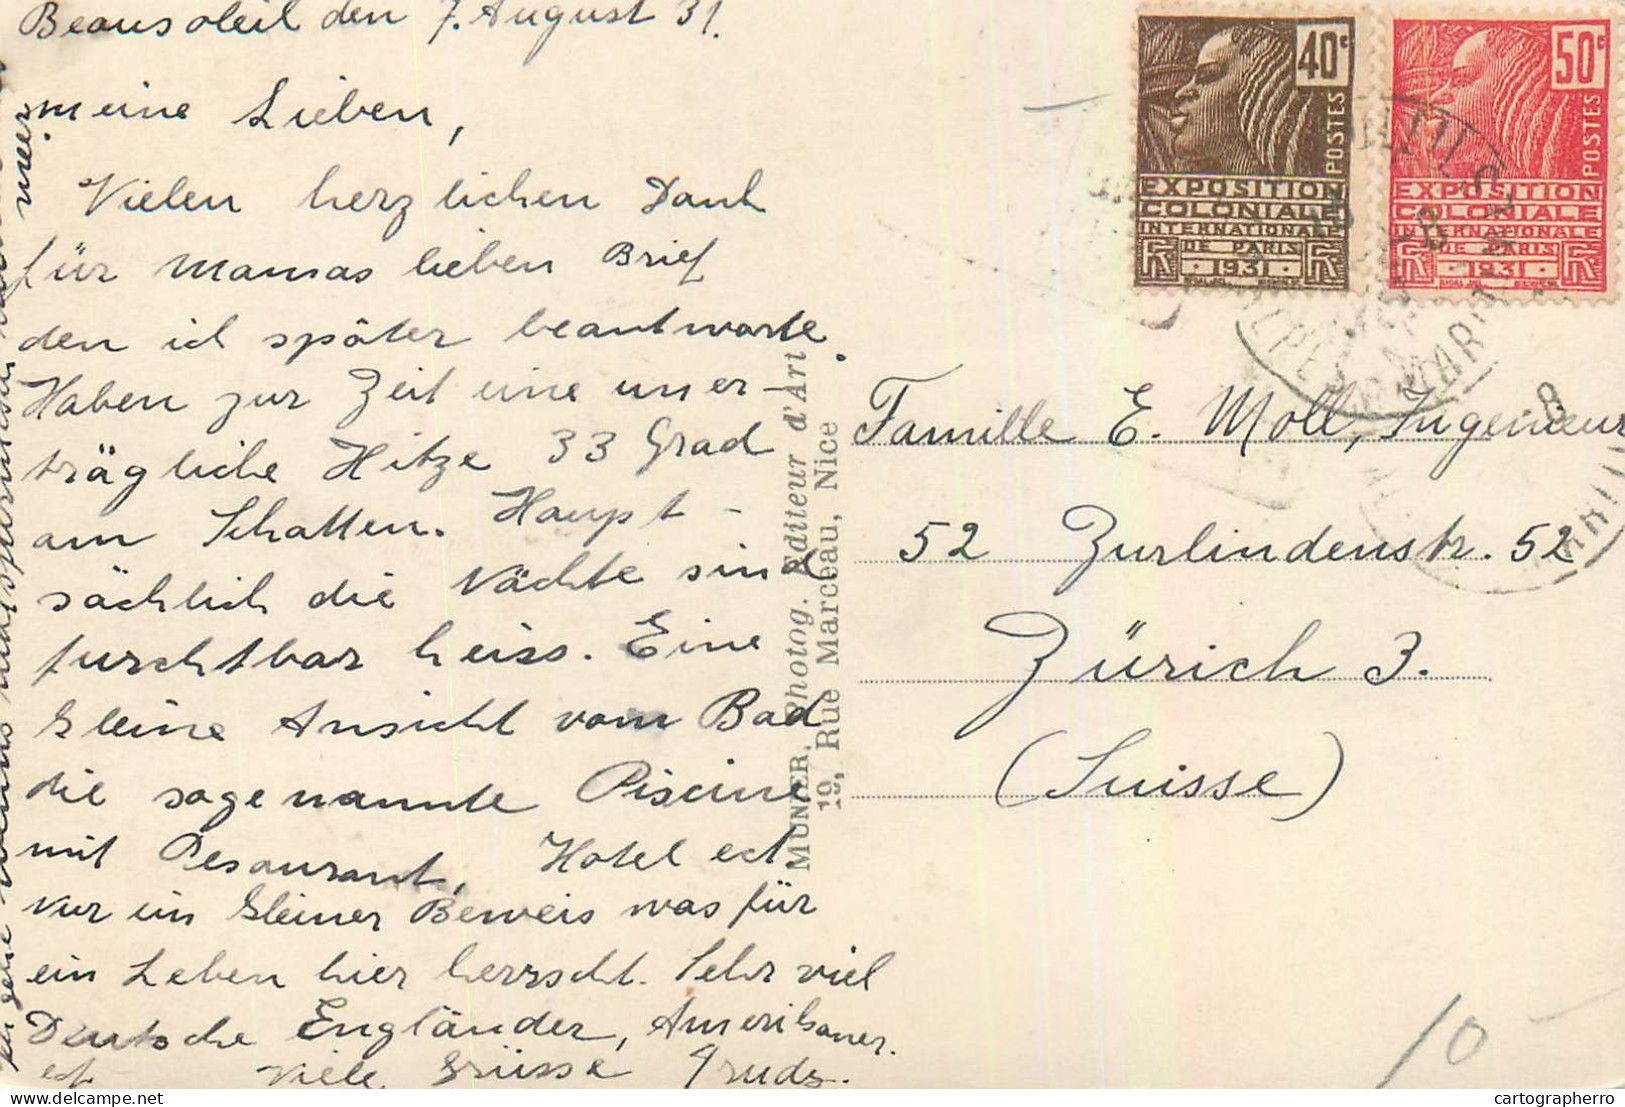 Beausoleil den 7. August 31.
meine Lieben,
Vielen herzlichen Dank
für Mamas lieben Brief
den ich später beantworte.
Haben zur Zeit eine uner-
trägliche Hitze 33 Grad
am Schatten. Haupt-
sächlich die Nächte sind
furchtbar heiss. Eine
kleine Ansicht vom Bad
die sogenannte Piscine
mit Resaurant, Hotel ect.
Nur ein kleiner Beweis was für
ein Leben hier herrscht. Sehr viel
Deutsche Engländer, Amerikaner.
ect. Viele Grüsse
hier
MUNIER, Photog. Editeur d'Art
19, Rue Marceau, Nice
40c
POSTES
EXPOSITION
COLONIALE
INTERNATIONALE
DE PARIS
1931
50c
POSTES
EXPOSITION
COLONIALE
INTERNATIONALE
DE PARIS
1931
Famille E. Moll, Ingenieur
52 Zurlindenstr. 52
Zürich 3.
(Suisse)
10
cartographerro